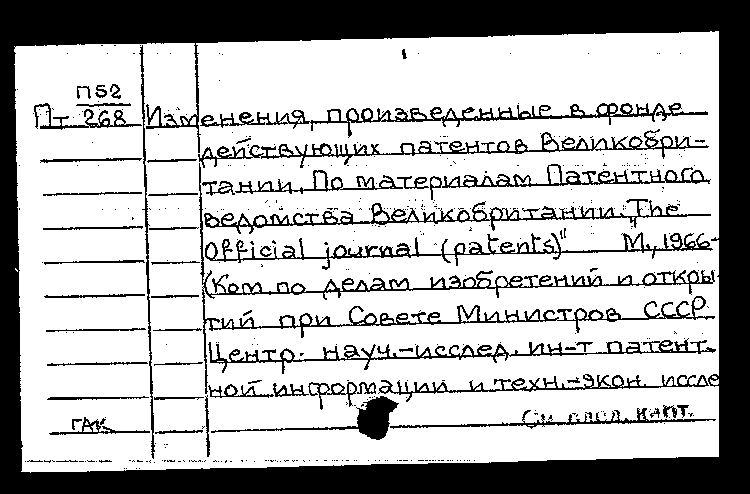 П52
Пт 268 Изменения, произведенные в фонде
действующих патентов Великобри-
тании. По материалам Патентного
ведомства Великобритании. "The
Official journal (patents)" М., 1966-
(Ком. по делам изобретений и откры
тий при Совете Министров СССР.
Центр. науч.-исслед. ин-т патент-
ной информации и техн.-экон. иссле
ГАК См. след. карт.